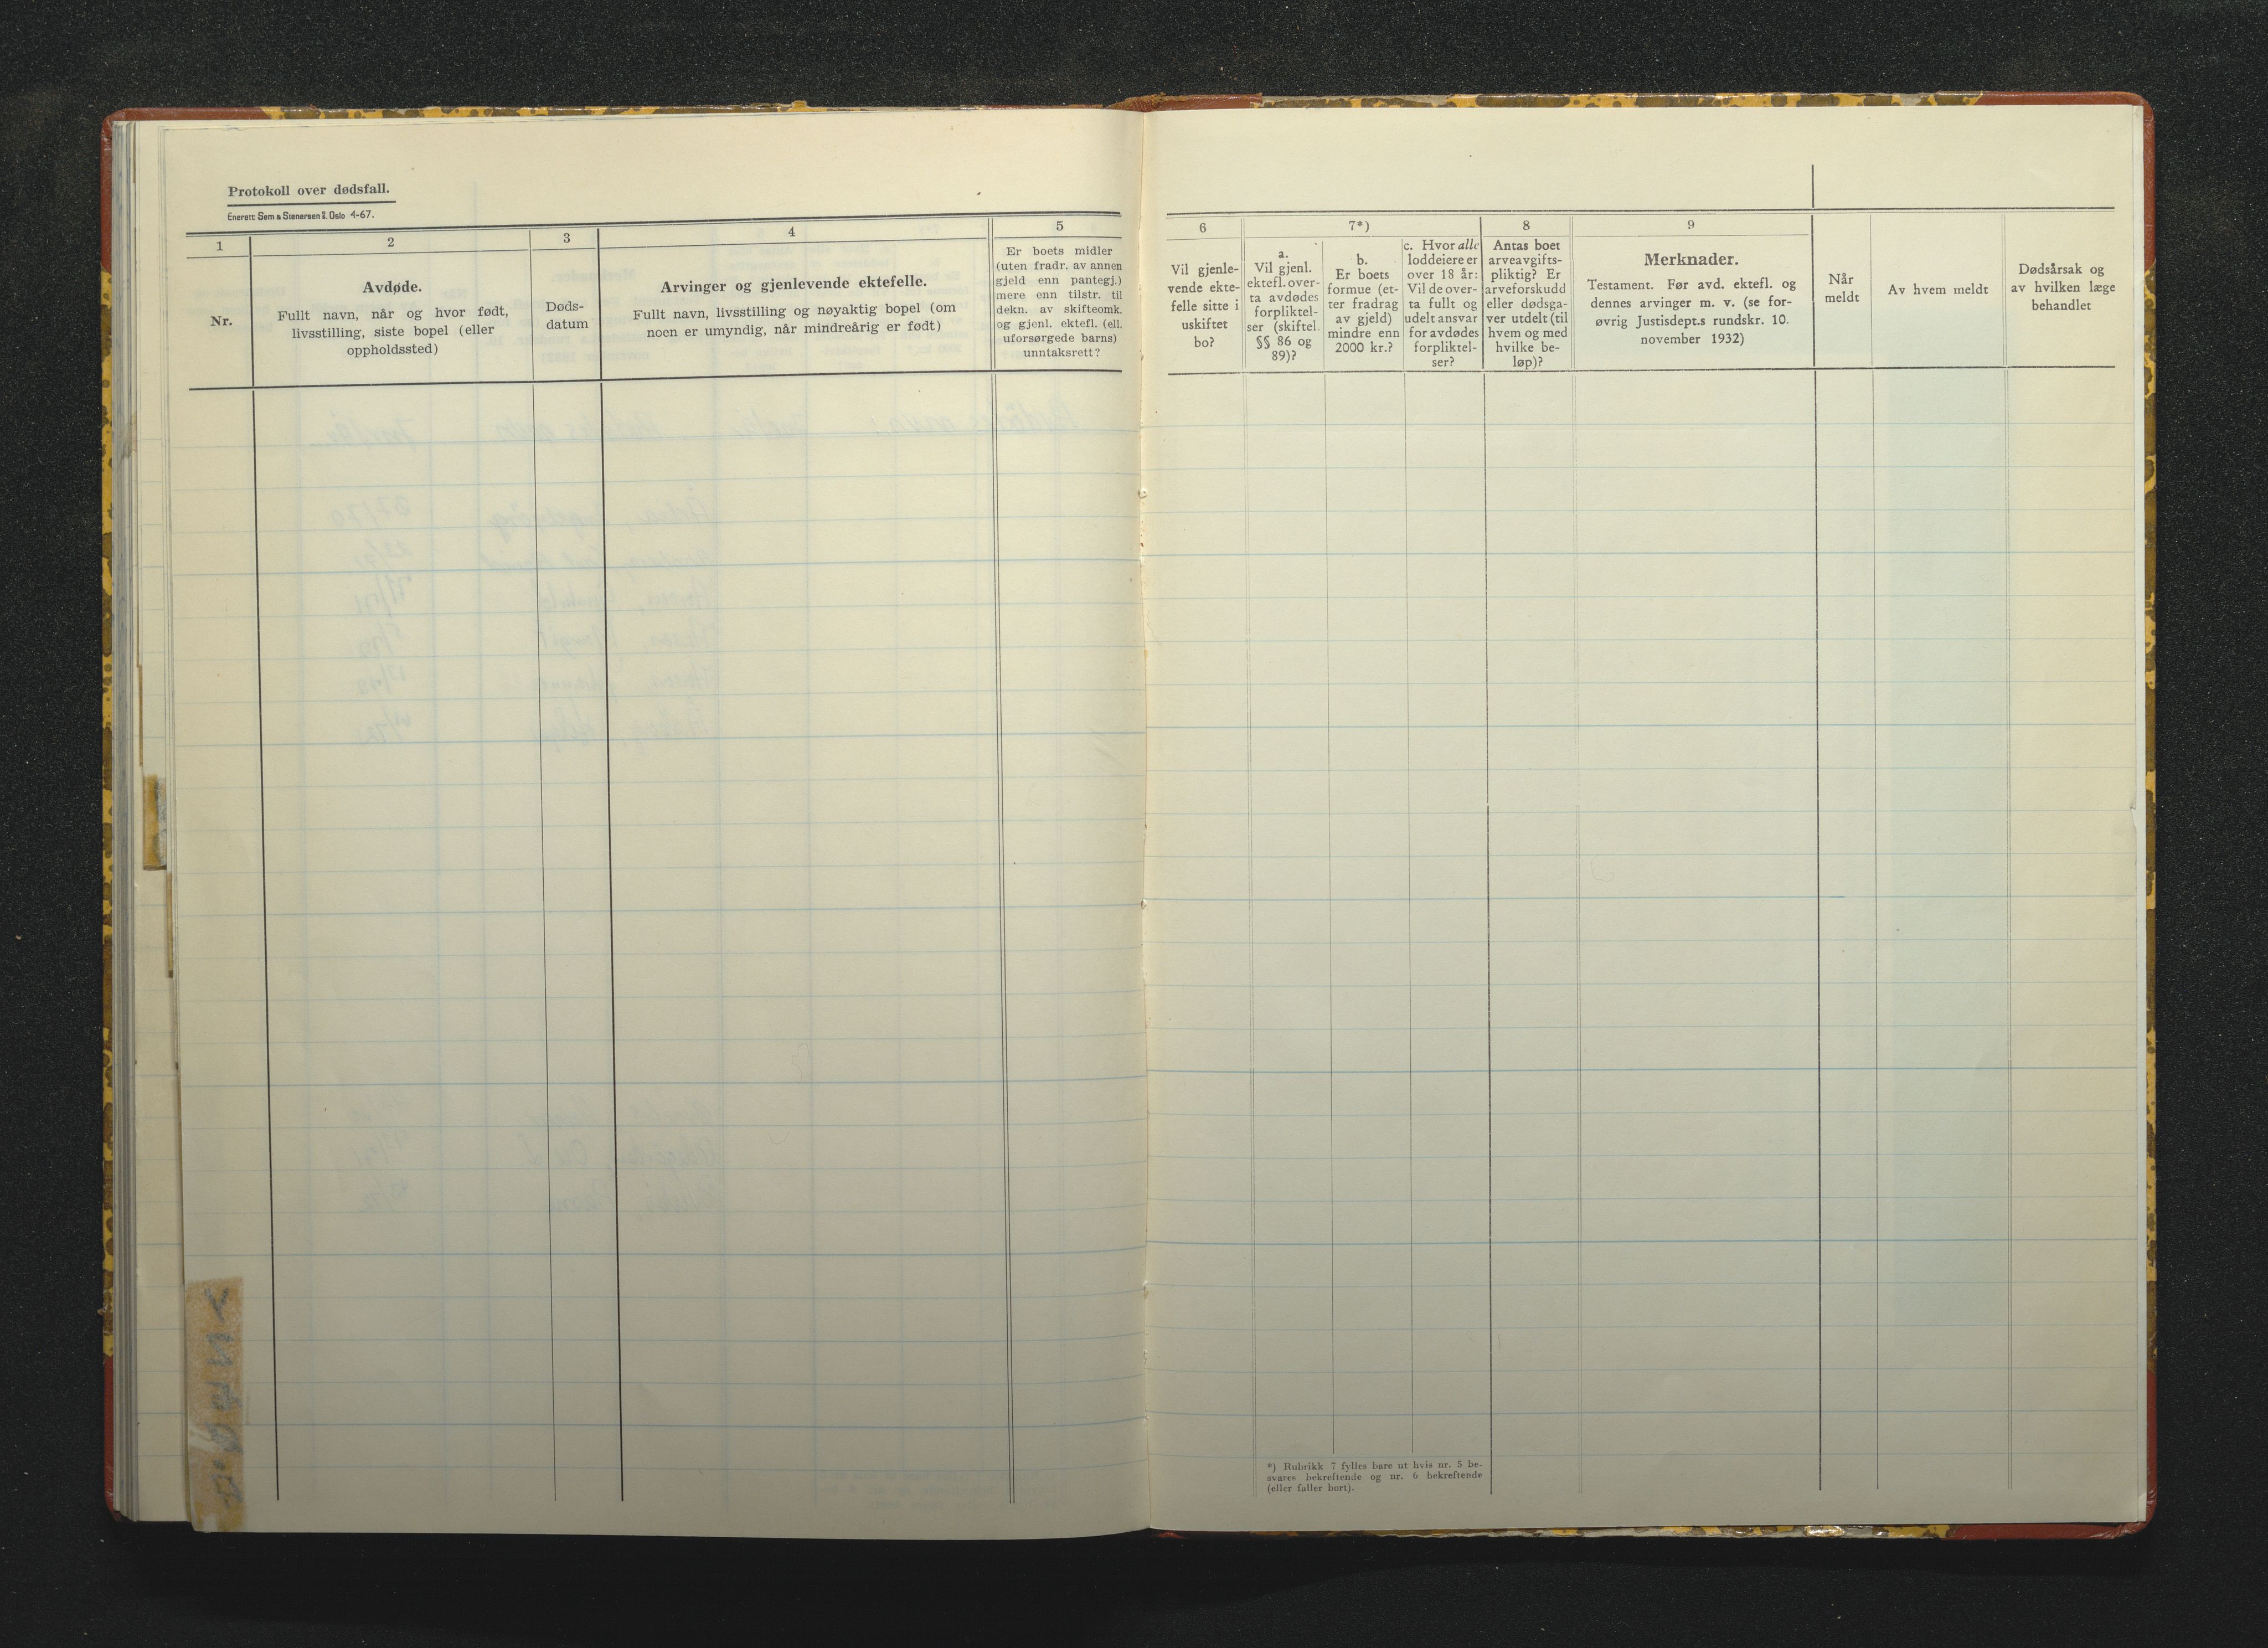 Protokoll over dødsfall.
Enerett: Sem & Stenersen A/S. Oslo 4-67.
1
Nr.
2
Avdøde.
Fullt navn, når og hvor født,
livsstilling, siste bopel (eller
oppholdssted)
3
Døds-
datum
4
Arvinger og gjenlevende ektefelle.
Fullt navn, livsstilling og nøyaktig bopel (om
noen er umyndig, når mindreårig er født)
5
Er boets midler
(uten fradr. av annen
gjeld enn pantegj.)
mere enn tilstr. til
dekn. av skifteomk.
og gjenl. ektefl. (ell.
uforsørgede barns)
unntaksrett?
6
Vil gjenle-
vende ekte-
felle sitte i
uskiftet
bo?
7*)
a.
Vil gjenl.
ektefl. over-
ta avdødes
forpliktel-
ser (skiftel.
§§ 86 og
89)?
b.
Er boets
formue (et-
ter fradrag
av gjeld)
mindre enn
2000 kr.?
c. Hvor alle
loddeiere er
over 18 år:
Vil de over-
ta fullt og
udelt ansvar
for avdødes
forpliktel-
ser?
8
Antas boet
arveavgifts-
pliktig? Er
arveforskudd
eller dødsga-
ver utdelt (til
hvem og med
hvilke be-
løp)?
9
Merknader.
Testament. Før avd. ektefl. og
dennes arvinger m. v. (se for-
øvrig Justisdept.s rundskr. 10.
november 1932)
Når
meldt
Av hvem meldt
Dødsårsak og
av hvilken læge
behandlet
*) Rubrikk 7 fylles bare ut hvis nr. 5 be-
svares bekreftende og nr. 6 bekreftende
(eller faller bort).